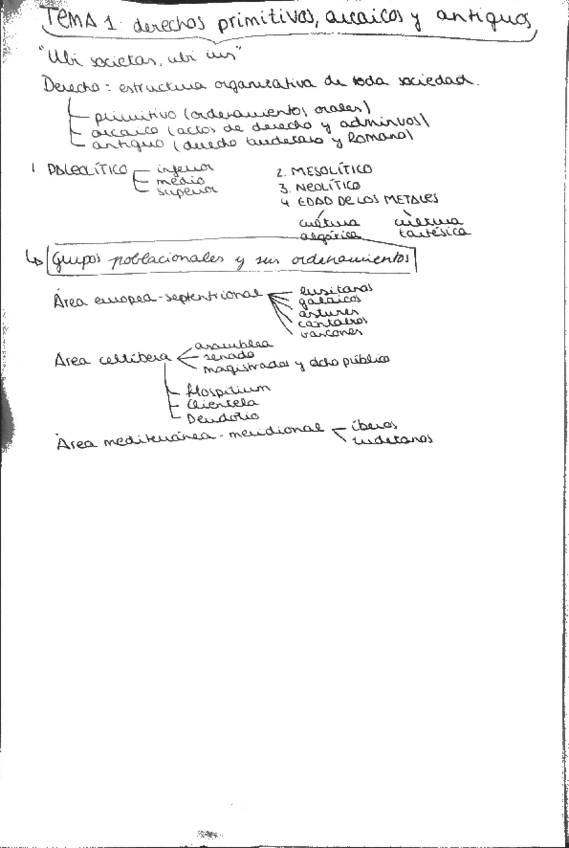 TEMA 1: derechos primitivos, arcaicos y antiguos
"Ubi societas, ubi ius"
Derecho: estructura organizativa de toda sociedad.
primitivo (ordenamientos orales)
arcaico (actos de derecho y adminvos)
antiguo (derecho turdetano y Romano)
1 PALEOLÍTICO inferior
medio
superior
2. MESOLÍTICO
3. NEOLÍTICO
4 EDAD DE LOS METALES
cultura argárica
cultura tartésica
Grupos poblacionales y sus ordenamientos
Área europea-septentrional lusitanos
galaicos
astures
cántabros
vascones
Área celtíbera asamblea
senado
magistrados y dcho público
Hospitium
Clientela
Devotio
Área mediterránea-meridional íberos
turdetanos